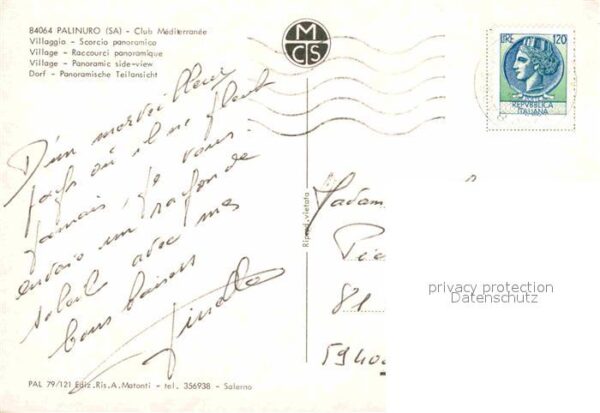 84064 PALINURO (SA) - Club Méditerranée
Villaggio - Scorcio panoramico
Village - Raccourci panoramique
Village - Panoramic side-view
Dorf - Panoramische Teilansicht
M
C S
LIRE 120
REPVBBLICA
ITALIANA
D'un merveilleux
pays où il ne pleut
jamais, je vous
envoie un rayon de
soleil avec mes
bons baisers
Ripr. vietata
Madam
Pie
81
59400
privacy protection
Datenschutz
PAL 79/121 Ediz. Ris. A. Matonti - tel. 356938 - Salerno